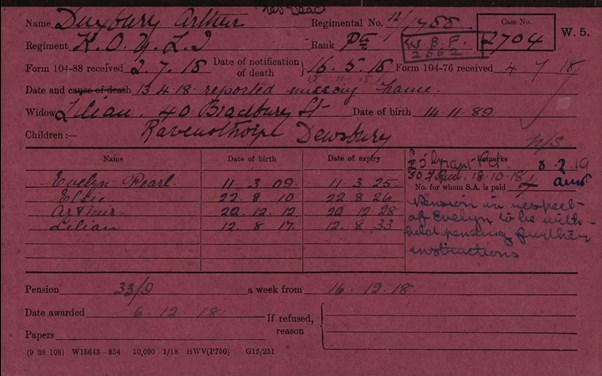 Name Duxbury Arthur Regimental No. 12/1455 Case No. 2704 W. 5.
Regiment K.O.Y.L.I Rank Pte W.B.F.
Form 104-88 received 2.7.18 Date of notification of death 16.5.18 Form 104-76 received 4 7 18
Date and cause of death 13 4 18 reported missing France
Widow Lilian. 40 Bradbury St Date of birth 14.11.89.
Children:— Ravensthorpe Dewsbury N/S
Name Date of birth Date of expiry Remarks
3.2.19
Evelyn Pearl. 11 3 09. 11 3 25 18.10.18
No. for whom S.A. is paid
Elsie 22 8 10 22 8 26
Arthur 20 12 12 20 12 28
Lilian 12. 8 17 12. 8 33
Pension in respect
of Evelyn to be with-
held pending further
instructions
Pension 33/9 a week from 16.12.18.
Date awarded 6.12.18. If refused, reason
Papers
(9 38 108) W15643—854 10,000 1/18 HWV(P750) G15/251